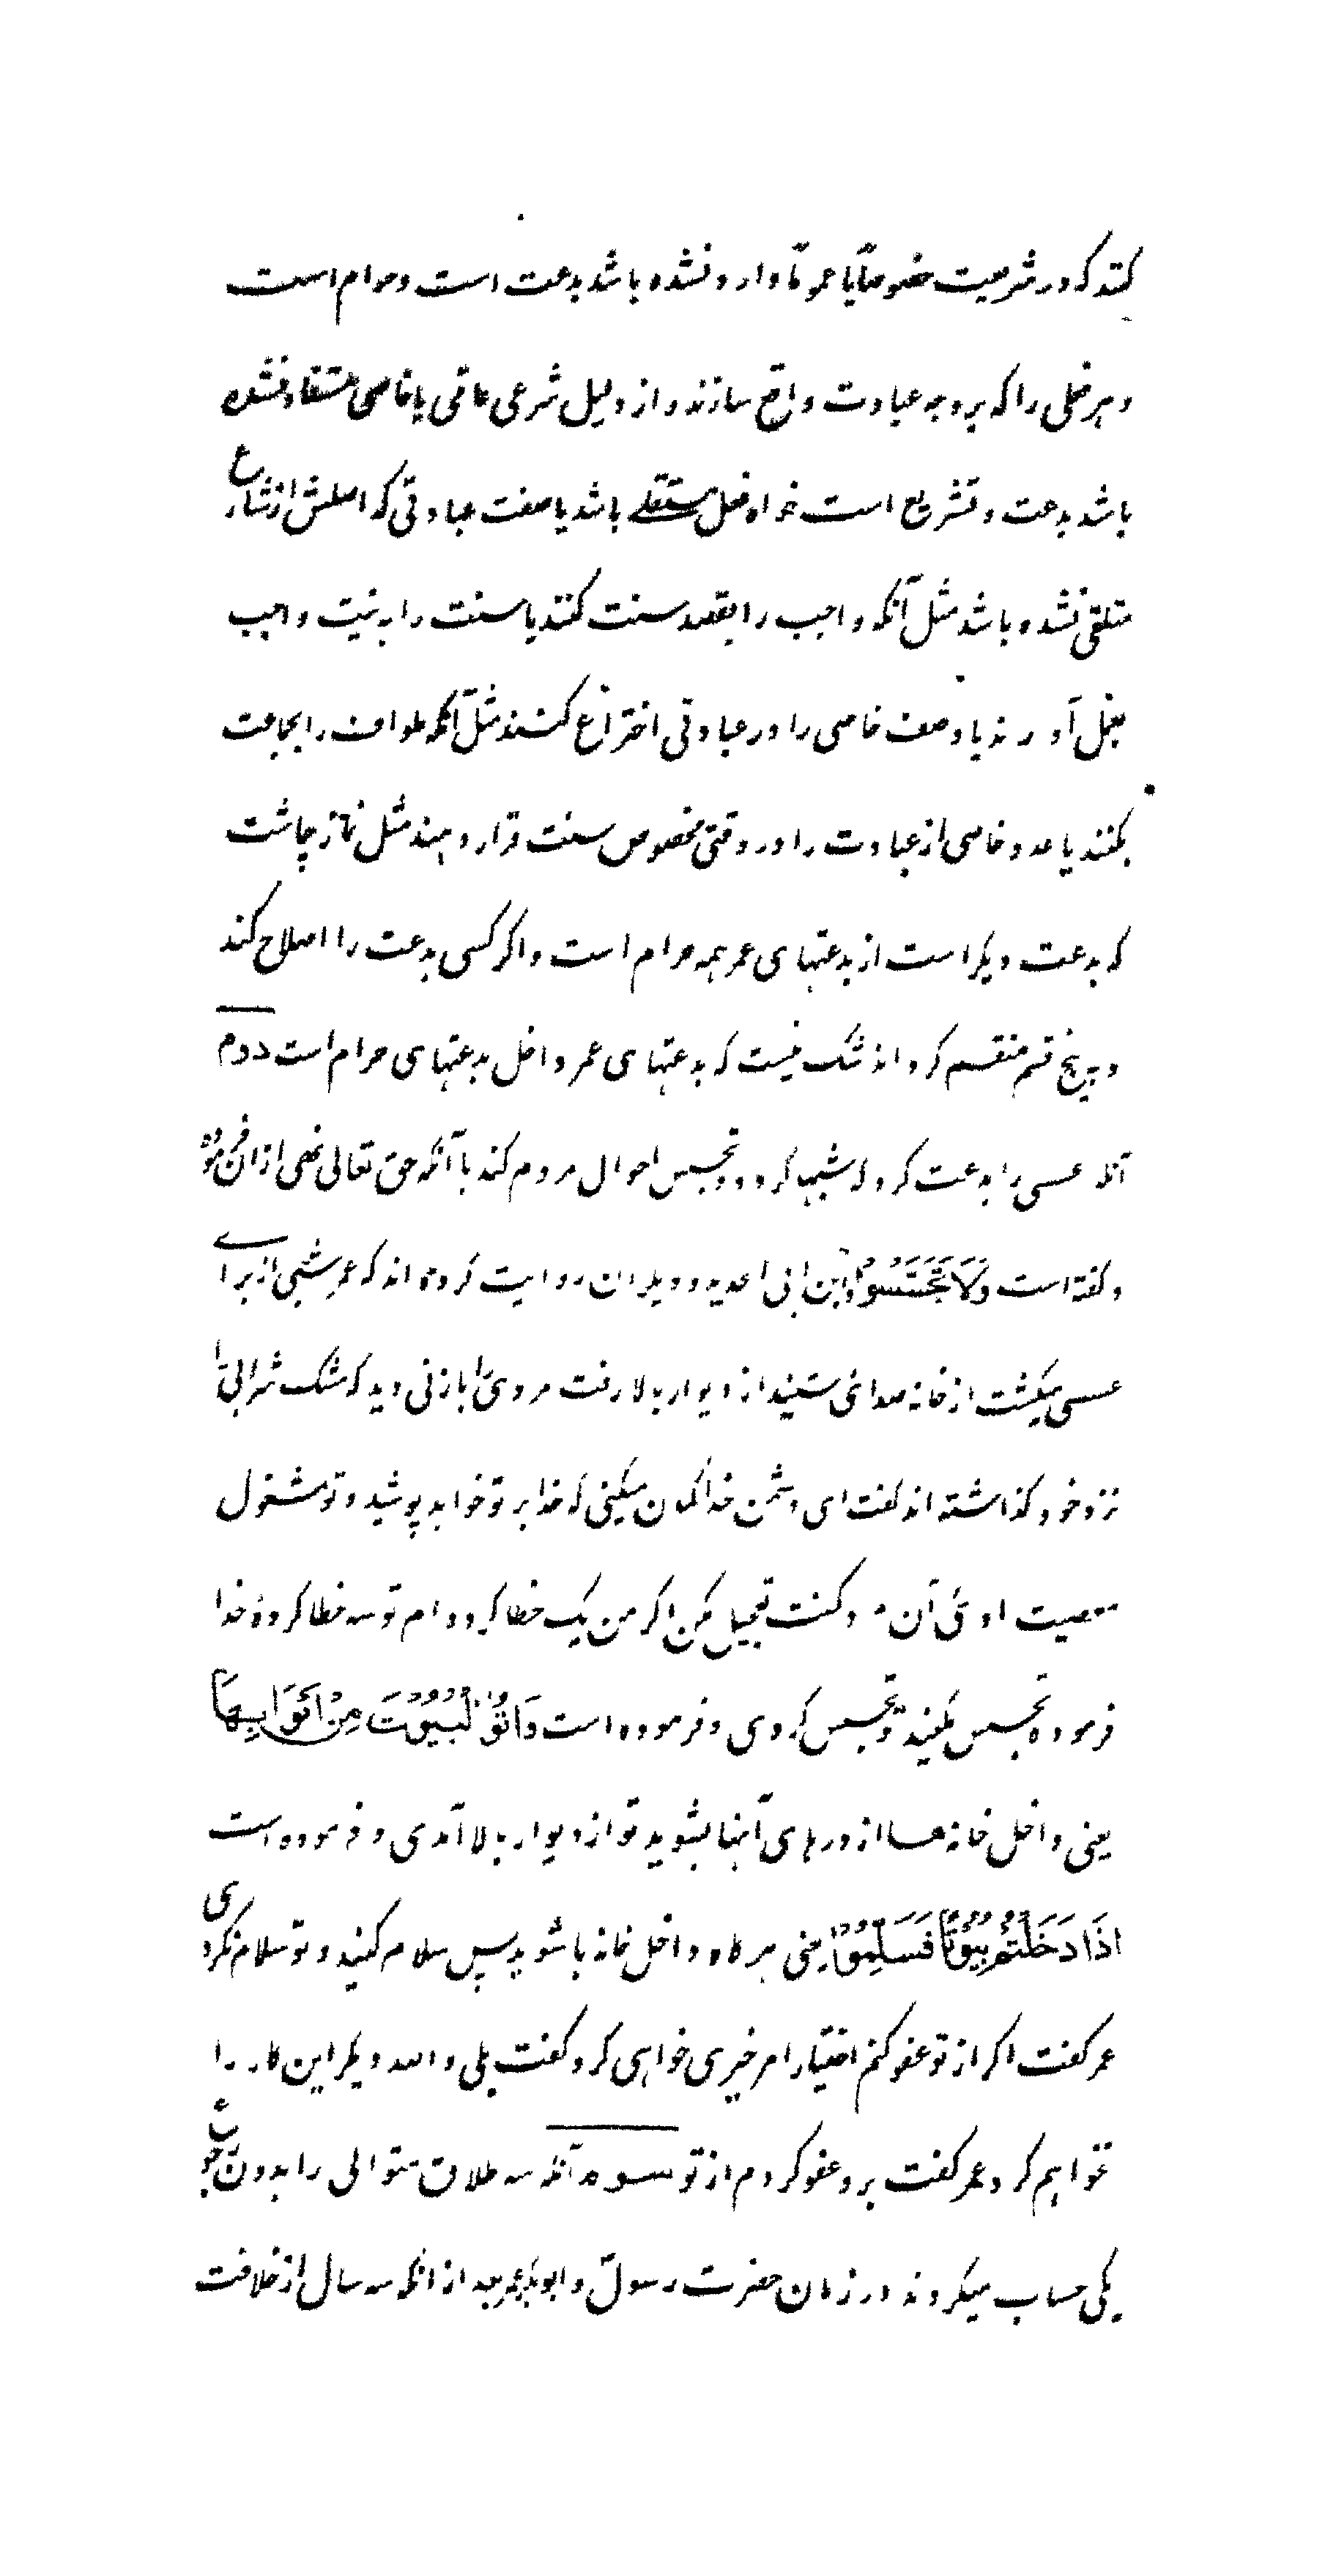 کنند که در شریعت خصوصاً یا عموماً وارد نشده باشد بدعت است و حرام است
و هر فعلی را که بر وجه عبادت واقع سازند و از دلیل شرعی عامی یا خاصی مستفاد نشده
باشد بدعت و تشریع است خواه فعل مستقلے باشد یا صفت عبادتی که اصلش از شارع
متلقی نشده باشد مثل آنکه واجب را بقصد سنت کنند یا سنت را به نیت واجب
بفعل آورند یا وصف خاصی را در عبادتی اختراع کنند مثل آنکه طواف را بجماعت
بکنند یا عدد خاصی از عبادت را در وقتی مخصوص سنت قرار دهند مثل نماز چاشت
که بدعت دیگر است از بدعتهای عمر همه حرام است و اگر کسی بدعت را اصلاح کند
و به پنج قسم منقسم کرداند شک نیست که بدعتهای عمر داخل بدعتهای حرام است دوم
آنکه عسسی را بدعت کرد که شبها کردد و تجسس احوال مردم کند با آنکه حق تعالی نهی از ان فرموده
و گفته است وَلَا تَجَسَّسُوا و ابن ابی الحدید و دیگران روایت کرده اند که عمر شبی از براے
عسسی میگشت از خانه صدائی شنید از دیوار بالا رفت مردی را با زنی دید که مشک شرابی را
نزد خود گذاشته اند گفت ای دشمن خدا گمان میکنی که خدا بر تو خواهد پوشید و تو مشغول
معصیت اوئی آن مرد گفت تعجیل مکن اگر من یک خطا کرده ام تو سه خطا کرده خدا
فرموده تجسس مکنید و تجسس کردی و فرموده است وَاتُوا الْبُيُوتَ مِنْ اَبْوَابِهَا
یعنی داخل خانه ها از درهای آنها بشوید تو از دیوار بالا آمدی و فرموده است
اِذَا دَخَلْتُمْ بُيُوتًا فَسَلِّمُوا یعنی هر گاه داخل خانه باشوید پس سلام کنید و تو سلام نکردی
عمر گفت اگر از تو عفو کنم اختیار امر خیری خواهی کرد گفت بلی و الله دیگر این کار را
نخواهم کرد عمر گفت برو عفو کردم از تو سوم آنکه سه طلاق متوالی را بدون رجوع
یکی حساب میکردند در زمان حضرت رسول و ابوبکر و عمر بعد از آنکه سه سال از خلافت